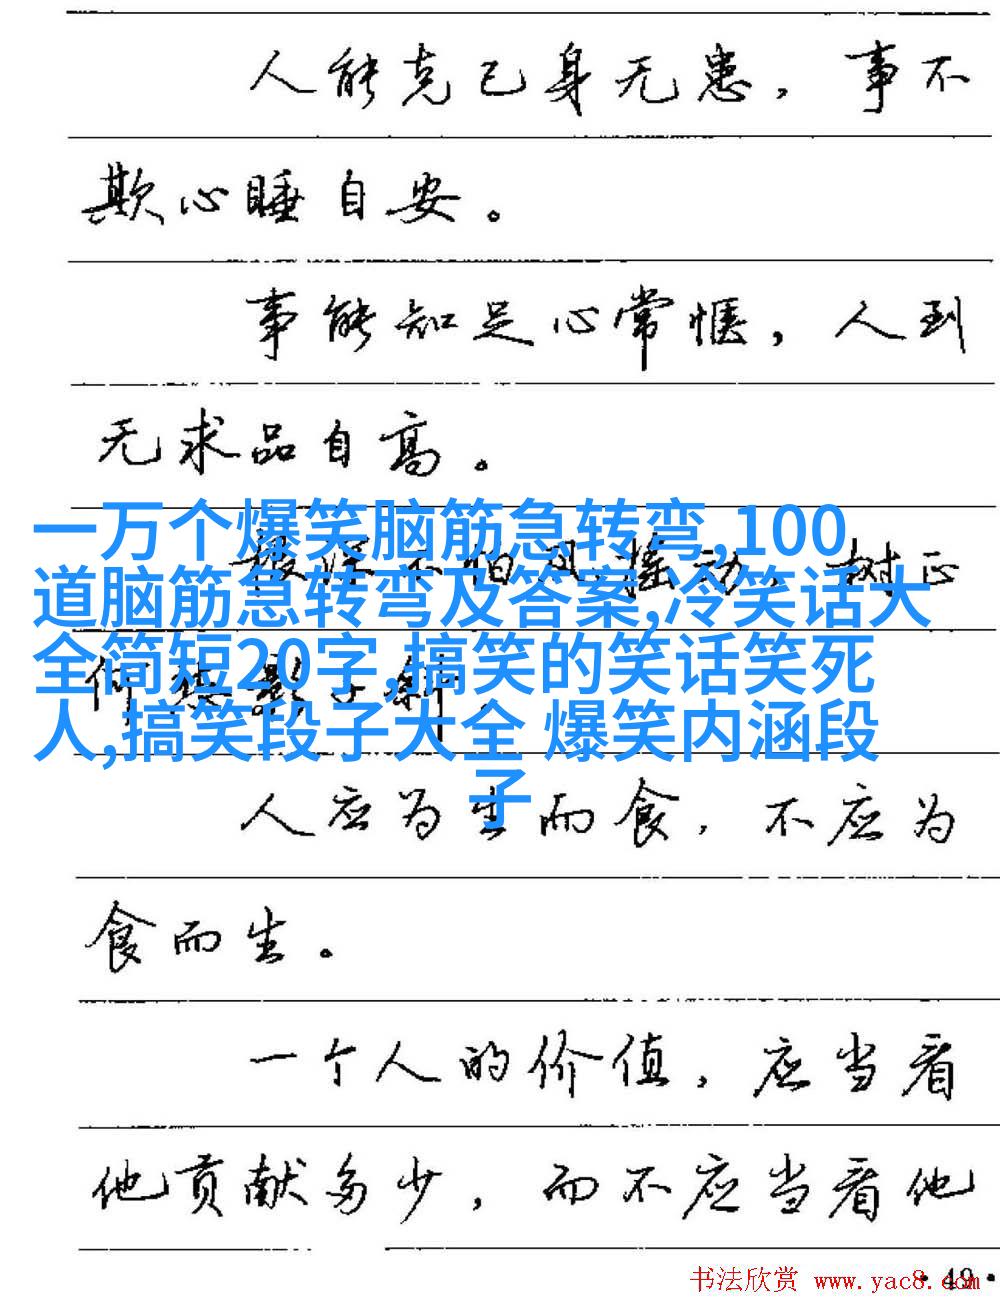 人能克己身无患，事不
欺心睡自安。
事能知足心常惬，人到
无求品自高。
一万个爆笑脑筋急转弯,100
根深不怕风摇动，树正
道脑筋急转弯及答案,冷笑话大
全简短20字,搞笑的笑话笑死
何愁影子斜
人,搞笑段子大全 爆笑内涵段
子
人应为生而食，不应为
食而生。
一个人的价值，应当看
他贡献多少，而不应当看他
书法欣赏 www.yac8.com
·49·